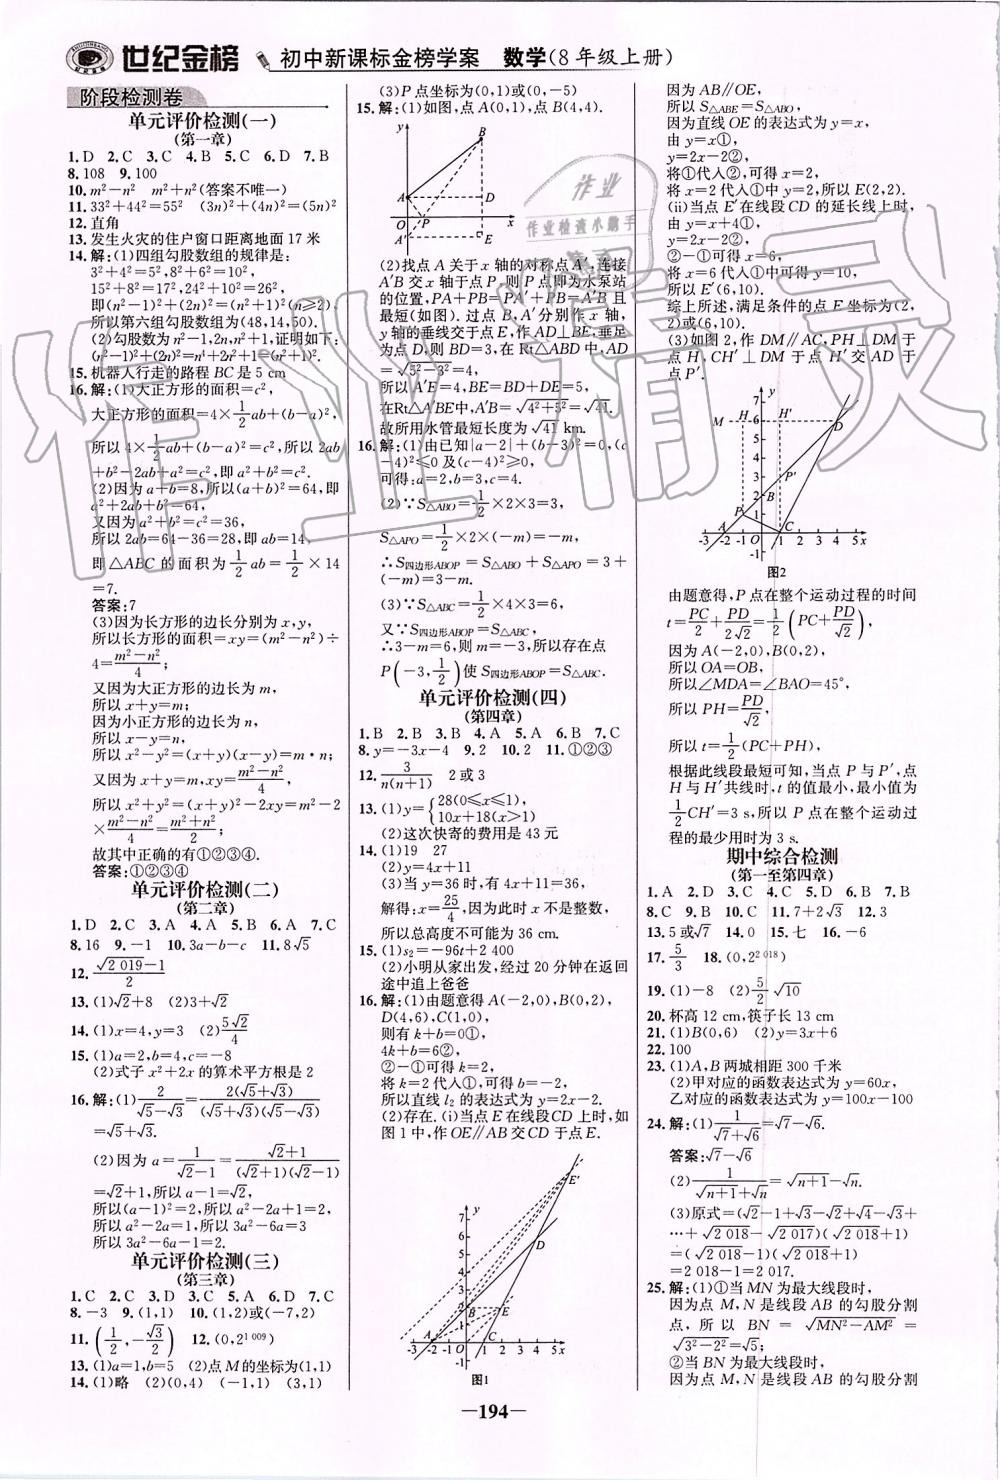 世纪金榜 初中新课标金榜学案 数学(8年级上册)
阶段检测卷
单元评价检测(一)
(第一章)
1.D 2.C 3.C 4.B 5.C 6.D 7.B
8.108 9.100
10.m²-n² m²+n²(答案不唯一)
11.33²+44²=55² (3n)²+(4n)²=(5n)²
12.直角
13.发生火灾的住户窗口距离地面17米
14.解:(1)四组勾股数组的规律是:
3²+4²=5²,8²+6²=10²,
15²+8²=17²,24²+10²=26²,
即(n²-1)²+(2n)²=(n²+1)²(n≥2),
所以第六组勾股数组为(48,14,50).
(2)勾股数为n²-1,2n,n²+1,证明如下:
(n²-1)²+(2n)²=n⁴+2n²+1=(n²+1)².
15.机器人行走的路程BC是5 cm
16.解:(1)大正方形的面积=c²,
大正方形的面积=4×1/2ab+(b-a)²,
所以4×1/2ab+(b-a)²=c²,所以2ab
+b²-2ab+a²=c²,即a²+b²=c².
(2)因为a+b=8,所以(a+b)²=64,即
a²+2ab+b²=64,
又因为a²+b²=c²=36,
所以2ab=64-36=28,即ab=14,
即△ABC的面积为1/2ab=1/2×14
=7.
答案:7
(3)因为长方形的边长分别为x,y,
所以长方形的面积=xy=(m²-n²)÷
4=(m²-n²)/4;
又因为大正方形的边长为m,
所以x+y=m;
因为小正方形的边长为n,
所以x-y=n,
所以x²-y²=(x+y)(x-y)=m·n;
又因为x+y=m,xy=(m²-n²)/4,
所以x²+y²=(x+y)²-2xy=m²-2
×(m²-n²)/4=(m²+n²)/2;
故其中正确的有①②③④.
答案:①②③④
单元评价检测(二)
(第二章)
1.D 2.C 3.A 4.A 5.B 6.A 7.C
8.16 9.-1 10.3a-b-c 11.8√5
12.(√2 019-1)/2
13.(1)√2+8 (2)√3+3
14.(1)x=4,y=3 (2)5√2/4
15.(1)a=2,b=4,c=-8
(2)式子x²+2x的算术平方根是2
16.解:(1)2/(√5-√3)=2(√5+√3)/((√5+√3)(√5-√3))
=√5+√3.
(2)因为a=1/(√2-1)=(√2+1)/((√2+1)(√2-1))
=√2+1,所以a-1=√2,
所以(a-1)²=2,所以a²-2a+1=2
所以a²-2a=1,所以3a²-6a=3
所以3a²-6a-1=2.
单元评价检测(三)
(第三章)
1.C 2.C 3.D 4.D 5.A 6.B 7.C
8.-3 9.(1,1) 10.(1,2)或(-7,2)
11.(1/2,-√3/2) 12.(0,2^1 009)
13.(1)a=1,b=5 (2)点M的坐标为(1,1)
14.(1)略 (2)(0,4) (-1,1) (3,1)
(3)P点坐标为(0,1)或(0,-5)
15.解:(1)如图,点A(0,1),点B(4,4).
y B
A D
O P x
A′ E
(2)找点A关于x轴的对称点A′,连接
A′B交x轴于点P,则P点即为水泵站
的位置,PA+PB=PA′+PB=A′B且
最短(如图).过点B,A′分别作x轴,
y轴的垂线交于点E,作AD⊥BE,垂足
为点D,则BD=3,在Rt△ABD中,AD
=√(5²-3²)=4,
所以A′E=4,BE=BD+DE=5,
在Rt△A′BE中,A′B=√(4²+5²)=√41.
故所用水管最短长度为√41 km.
16.解:(1)由已知|a-2|+(b-3)²=0,(c
-4)²≤0及(c-4)²≥0,
可得:a=2,b=3,c=4.
(2)∵S△ABO=1/2×2×3=3,
S△APO=1/2×2×(-m)=-m,
∴S四边形ABOP=S△ABO+S△APO=3+
(-m)=3-m.
(3)∵S△ABC=1/2×4×3=6,
又∵S四边形ABOP=S△ABC,
∴3-m=6,则m=-3,所以存在点
P(-3,1/2)使S四边形ABOP=S△ABC.
单元评价检测(四)
(第四章)
1.B 2.B 3.B 4.A 5.A 6.B 7.C
8.y=-3x-4 9.2 10.2 11.①②③
12.3/(n(n+1)) 2或3
13.(1)y={28(0≤x≤1),
10x+18(x>1)
(2)这次快寄的费用是43元
14.(1)19 27
(2)y=4x+11
(3)当y=36时,有4x+11=36,
解得:x=25/4,但是,因为x不是整数,
所以总高度不可能为36 cm.
15.(1)s₂=-96t+2 400
(2)小明从家出发,经过20分钟在返回
途中追上爸爸
16.解:(1)由题意得A(-2,0),B(0,2),
D(4,6),C(1,0),
则有k+b=0①,
4k+b=6②,
②-①可得k=2,
将k=2代人①,可得b=-2,
所以直线l₂的表达式为y=2x-2.
(2)存在.(i)当点E在线段CD上时,如
图1中,作OE∥AB交CD于点E.
y E′
D
B E
A C
-3 -2 -1 O 1 2 3 4 5 x
图1
因为AB∥OE,
所以S△ABE=S△ABO,
因为直线OE的表达式为y=x,
由y=x①,
y=2x-2②,
将①代人②,可得x=2,
将x=2代人①中y=2,所以E(2,2).
(ii)当点E′在线段CD的延长线上时,
由y=x+4①,
y=2x-2②,
②-①可得x=6,
将x=6代人①中可得y=10,
所以E′(6,10).
综上所述,满足条件的点E坐标为(2,
2)或(6,10).
(3)如图2,作DM∥AC,PH⊥DM于
点H,CH′⊥DM于点H′交AD于
点P′.
y
M H H′ D
P′
B
P
A C
-3 -2 -1 O 1 2 3 4 5 x
图2
由题意得,P点在整个运动过程的时间
t=PC/2+PD/(2√2)=1/2(PC+PD/√2),
因为A(-2,0),B(0,2),
所以OA=OB,
所以∠MDA=∠BAO=45°,
所以PH=PD/√2,
所以t=1/2(PC+PH),
根据此线段最短可知,当点P与P′,点
H与H′共线时,t的值最小,最小值为
1/2CH′=3 s,所以P点在整个运动过
程的最少用时为3 s.
期中综合检测
(第一至第四章)
1.A 2.D 3.C 4.C 5.D 6.B 7.B
8.C 9.B 10.C 11.7+2√3 12.3
13.5或√7 14.0 15.七 16.-6
17.5/3 18.(0,2^2 018)
19.(1)-8 (2)5/2√10
20.杯高12 cm,筷子长13 cm
21.(1)B(0,6) (2)y=3x+6
22.100
23.(1)A,B两城相距300千米
(2)甲对应的函数表达式为y=60x,
乙对应的函数表达式为y=100x-100
24.解:(1)1/(√7+√6)=√7-√6.
答案:√7-√6
(2)1/(√(n+1)+√n)=√(n+1)-√n.
(3)原式=(√2-1+√3-√2+√4-√3+
…+√2 018-√2 017)(√2 018+1)
=(√2 018-1)(√2 018+1)
=2 018-1=2 017.
25.解:(1)①当MN为最大线段时,
因为点M,N是线段AB的勾股分割
点,所以BN=√(MN²-AM²)=
√(3²-2²)=√5;
②当BN为最大线段时,
因为点M,N是线段AB的勾股分割
—194—
作业
作业检查小助手
作业精灵